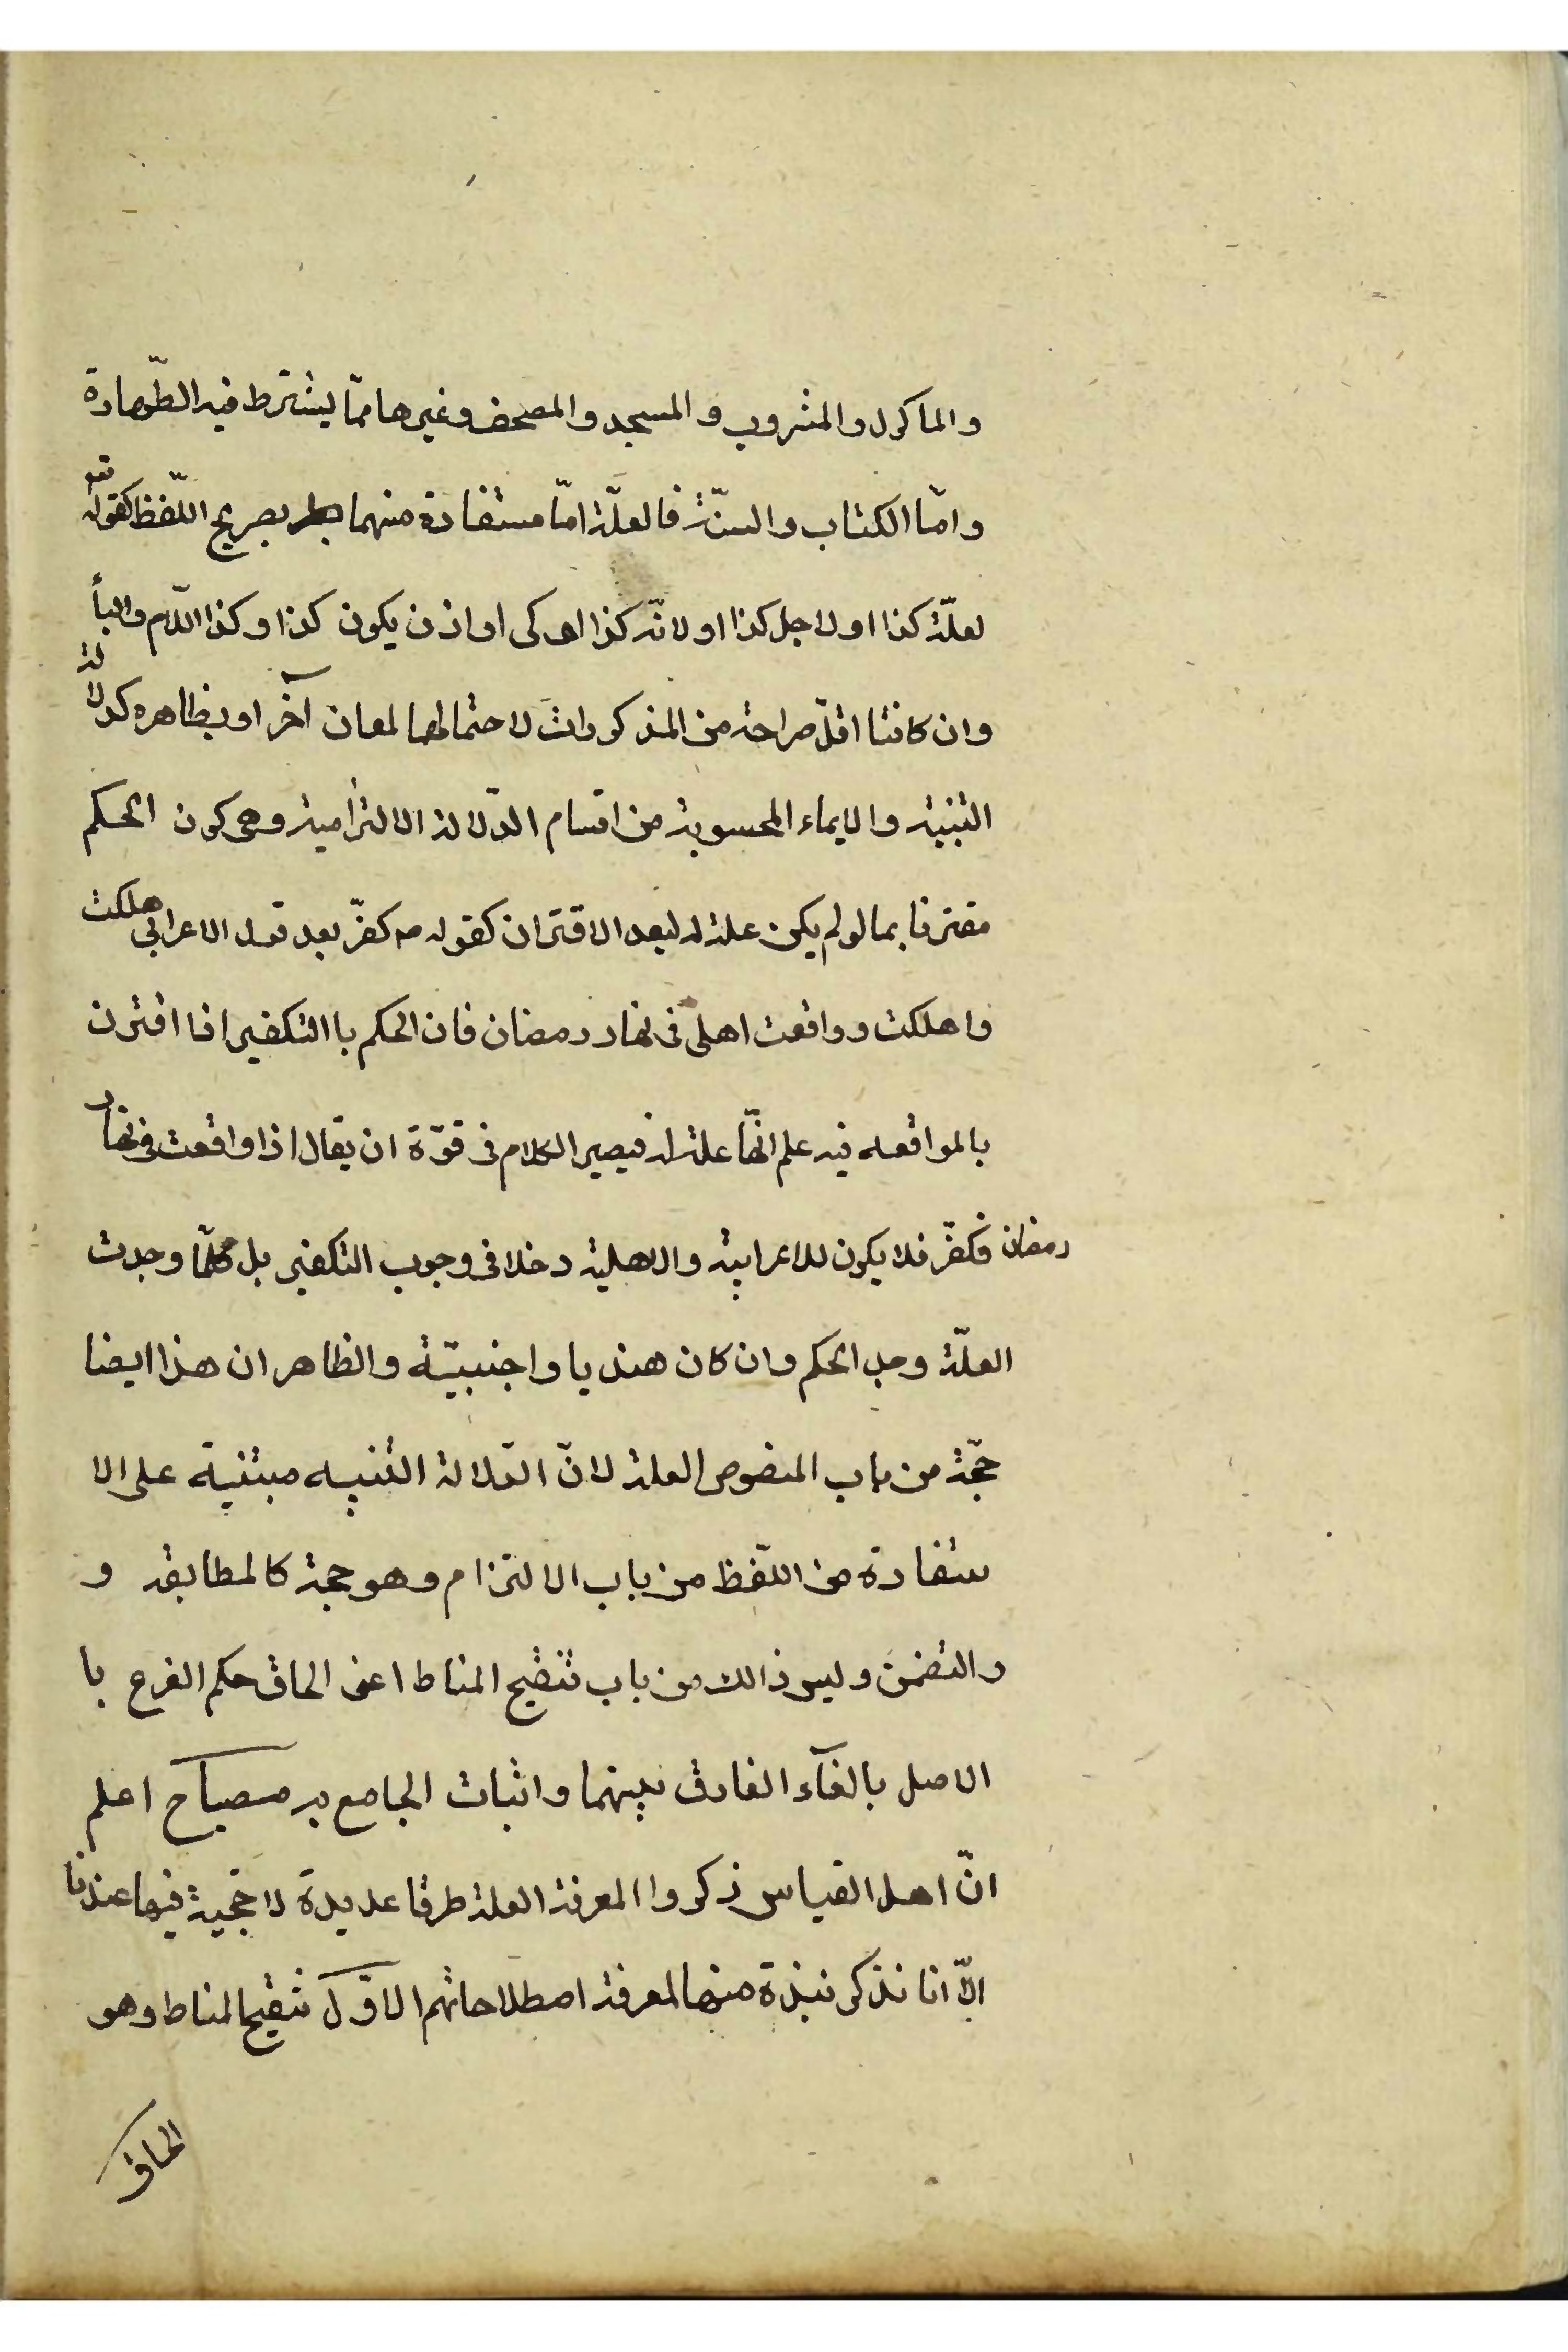 والماكول والمشروب والمسجد والمصحف وغيرها ممّا يشترط فيه الطّهارة
وامّا الكتاب والسنّة فالعلّة امّا مستفادة منهما بصريح اللّفظ كقوله تعه
لعلّة كذا او لاجل كذا او لانّه كذا او كى او اذن يكون كذا وكذا اللّام والبأ
وان كانتا اقلّ صراحة من المذكورات لاحتمالهما لمعان آخر او بظاهره كدلالة
التنبيه والايماء المحسوبة من اقسام الدّلالة الالتزامية وهى كون الحكم
مقترنا بما لو لم يكن علة له لبعد الاقتران كقوله ص كفّر بعد قول الاعرابى هلكت
واهلكت وواقعت اهلى فى نهار رمضان فان الحكم باالتكفير اذا اقترن
بالمواقعه فيه علم انّها علة له فيصير الكلام فى قوّة ان يقال اذا واقعت فى نهار
رمضان فكفّر فلا يكون للاعرابية والاهلية دخلا فى وجوب التكفير بل كلّما وجدت
العلّة وجب الحكم وان كان هنديا واجنبيّة والظاهر ان هذا ايضا
حجّة من باب المنصوص العلة لانّ الدّلالة التنبيه مبتنية على الا
ستفادة من اللّفظ من باب الالتزام وهو حجة كالمطابقة و
والتضمن وليس ذالك من باب تنقيح المناط اعنى الحاق حكم الفرع با
الاصل بالغآء الفارق بينهما واثبات الجامع به مصباح اعلم
انّ اهل القياس ذكروا المعرفة العلة طرقا عديدة لا حجّية فيها عندنا
الّا انا نذكر نبذة منها لمعرفة اصطلاحاتهم الاوّل تنقيح المناط وهو
الحاق